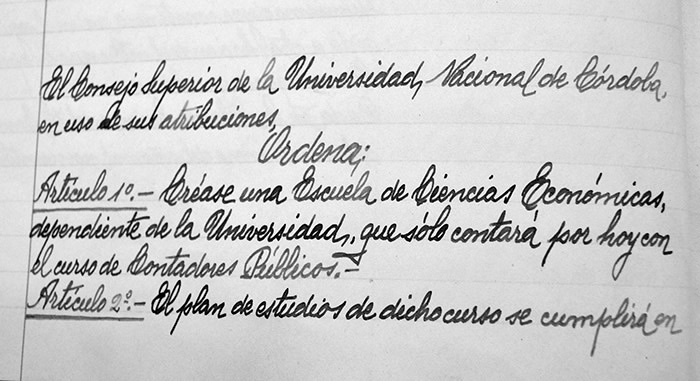 El Consejo Superior de la Universidad, Nacional de Córdoba,
en uso de sus atribuciones,
Ordena:
Artículo 1º.- Créase una Escuela de Ciencias Económicas,
dependiente de la Universidad, que sólo contará por hoy con
el curso de Contadores Públicos.-
Artículo 2º.- El plan de estudios de dicho curso se cumplirá en